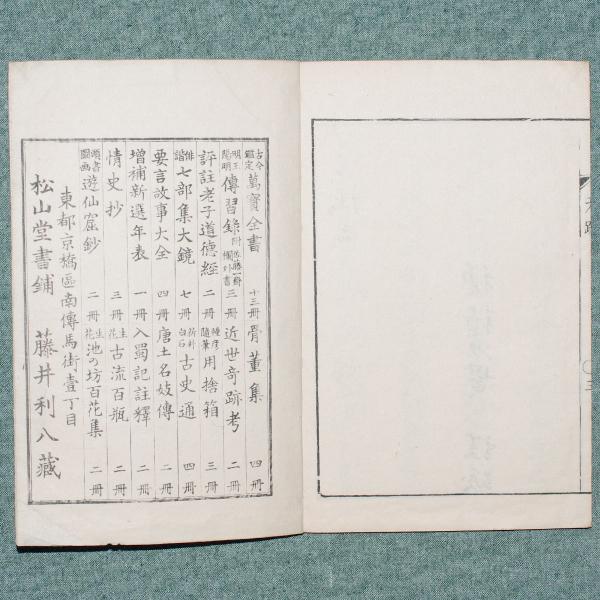 古今鑑定 萬寶全書 十三冊 骨董集 四冊
明王陽明 傳習錄 附佐藤一齋欄外書 三冊 近世奇跡考 二冊
評註老子道德經 二冊 隨筆 用捨箱 三冊
俳諧 七部集大鏡 七冊 新井白石 古史通 四冊
要言故事大全 四冊 唐土名妓傳 二冊
增補新選年表 一冊 入蜀記註釋 二冊
情史抄 三冊 生花 古流百瓶 二冊
頭書圖画 遊仙窟鈔 二冊 生花 池の坊百花集 二冊
東都京橋區南傳馬街壹丁目
松山堂書鋪 藤井利八藏